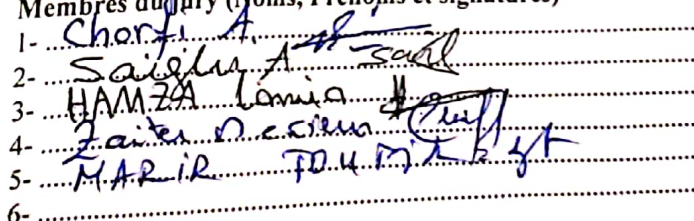 Membres du jury (Noms, Prénoms et signatures)
1- Chorfi A.
2- Saighi A
3- HAMZA Lamia
4- Zaiter Meriem
5- MARIR
6-